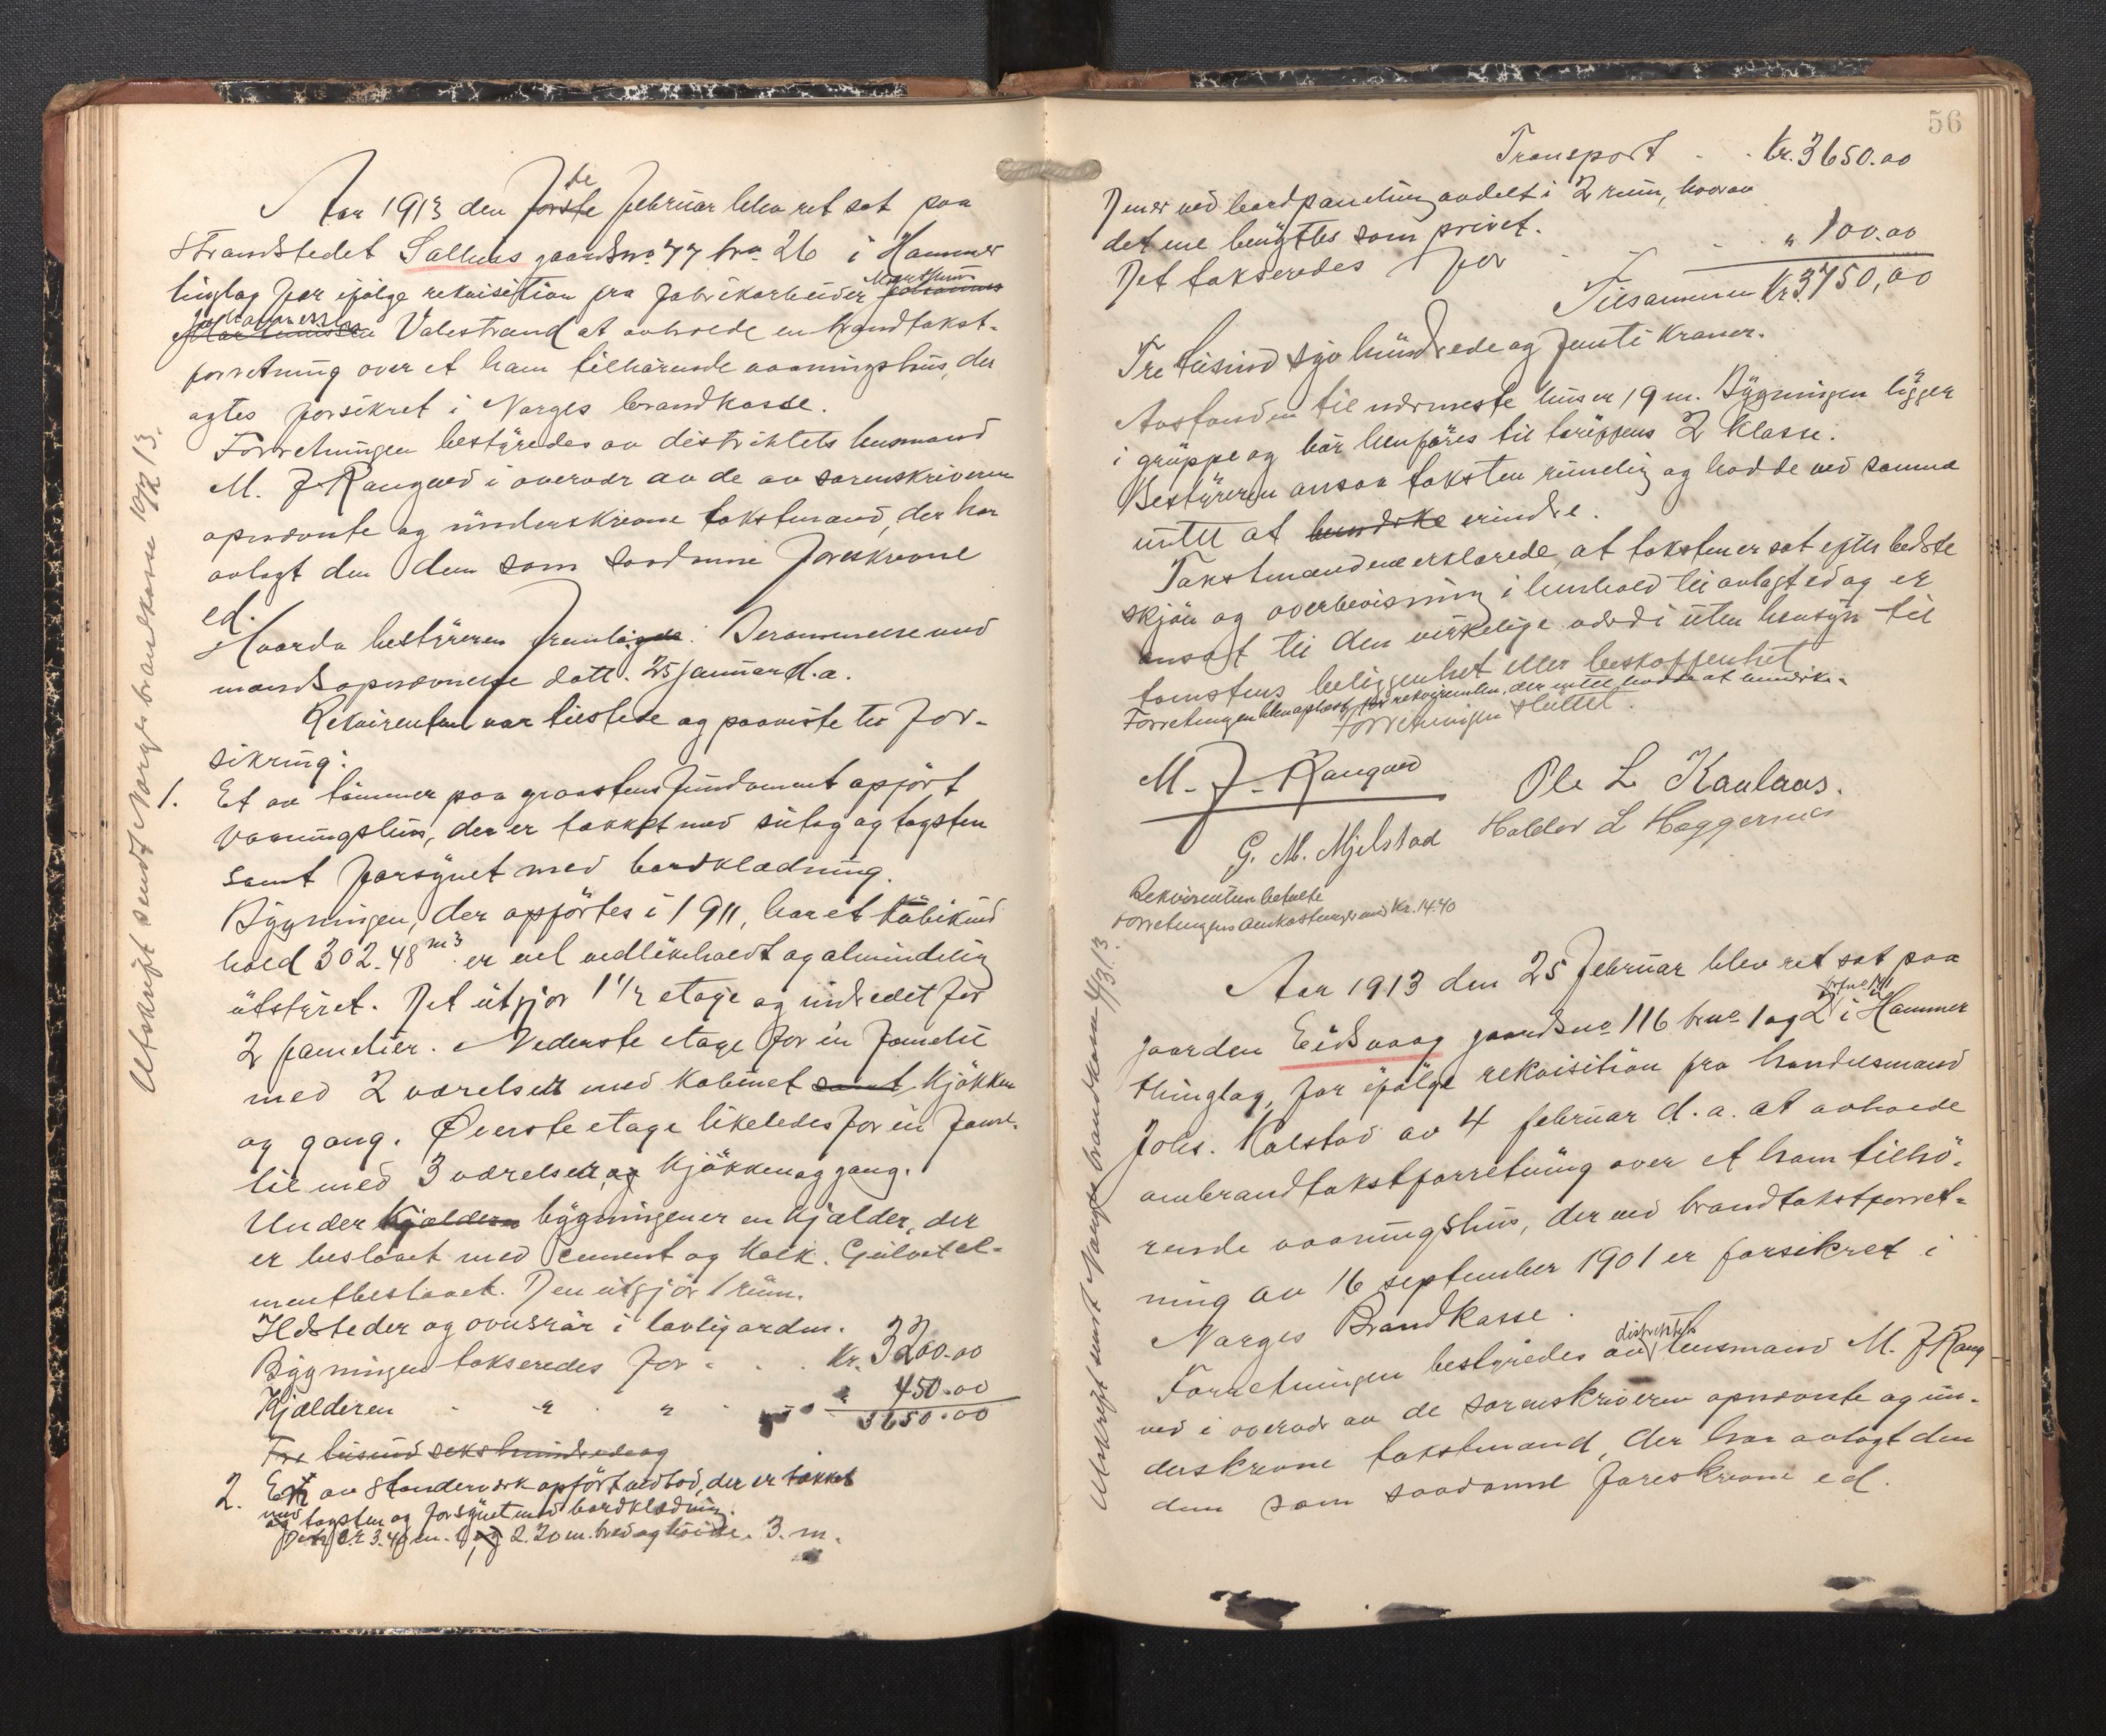 Utskrift sendt Norges brandkasse 10/2 13.
Aar 1913 den første te februar blev ret sat paa
Strandstedet Salhus gaardsno 77 bno 26 i Hammer
tinglag for ifølge rekvisition fra fabrikarbeider Johannes
Johannessen Valestrand at avholde en brandtakst-
forretning over et ham tilhørende vaaningshus, der
agtes forsikret i Norges brandkasse.
Forretningen bestyredes av distriktets lensmand
M. J. Rangved i overvær av de av sorenskriveren
opnævnte og underskrevne takstmænd, der har
avlagt den dem som saadanne foreskrevne
ed.
Hvorda bestyreren fremlagde: Berammelse med
mandsopnævnelse datt. 25 januar d.a.
Rekvirenten var tilstede og paaviste til for-
sikring:
1. Et av tømmer paa graastens fundament opført
vaaningshus, der er tækket med sutag og tagsten
samt forsynet med bordklædning.
Bygningen, der opførtes i 1911, har et kubikind
hold 302.48 m3. er vel vedlikeholdt og almindelig
utstyret. Det utgjør 1 1/2 etage og indredet for
2 familier. Nederste etage for en familie
med 2 værelser med kabinet samt kjøkken
og gang. Øverste etage likeledes for en fami-
lie med 3 værelser, og kjøkken og gang.
Under kjælderen bygningen er en kjælder, der
er beslaaet med cement og kalk. Gulvet ce-
mentbeslaaet. Den utgjør 1 rum.
Ildsteder og ovnsrør i lovlig orden.
Bygningen takseredes for - . . . Kr. 3200.00
Kjælderen - " - " - " 450.00
3650.00
Tre tusind sekshundrede og
2. Et av stenderverk opført vedbod, der er tækket
med tagsten og forsynet med bordklædning.
Den er 3.40 m. l, og 2.20 m. bred og høide. 3. m.
56
Transport . . Kr. 3650.00
Den er ved bordpaneling avdelt i 2 rum, hvorav
det ene benyttes som privet.
Det takseredes for - . . . " 100.00
Tilsammen Kr. 3750,00
Tre tusind syv hundrede og femti kroner.
Avstanden til nærmeste hus er 19 m. Bygningen ligger
i gruppe og bør henføres til tariffens 2 klasse.
Bestyreren ansaa taksten rimelig og hadde ved samme
intet at bemærke erindre.
Takstmændene erklærede, at taksten er sat efter bedste
skjøn og overbevisning i henhold til avlagt ed og er
ansat til den virkelige værdi uten hensyn til
tomtens beliggenhet eller beskaffenhet
Forretningen blev oplæst for rekvirenten, der intet hadde at bemærke.
Forretningen sluttet.
M. J. Rangved
Ole L Kaulaas.
G. M. Mjelstad Haldor L Haggernes
Rekvirenten betalte
forretningens omkostninger med Kr. 14.40
Utskrift sendt Norges brandkasse 4/3 13.
Aar 1913 den 25 februar blev ret sat paa
gaarden Eidsvaag gaardsno 116 bno 1 og 2 i Hammer
thinglag, for ifølge rekvisition fra handelsmand
Johs. Kalstad av 4 februar d.a. at avholde
ombrandtakstforretning over et ham tilhø-
rende vaaningshus, der ved brandtakstforret-
ning av 16 september 1901 er forsikret i
Norges Brandkasse.
Forretningen bestyredes av distriktets lensmand M. J. Rang
ved i overvær av de sorenskriveren opnævnte og un-
derskrevne takstmænd, der har avlagt den
dem som saadanne foreskrevne ed.